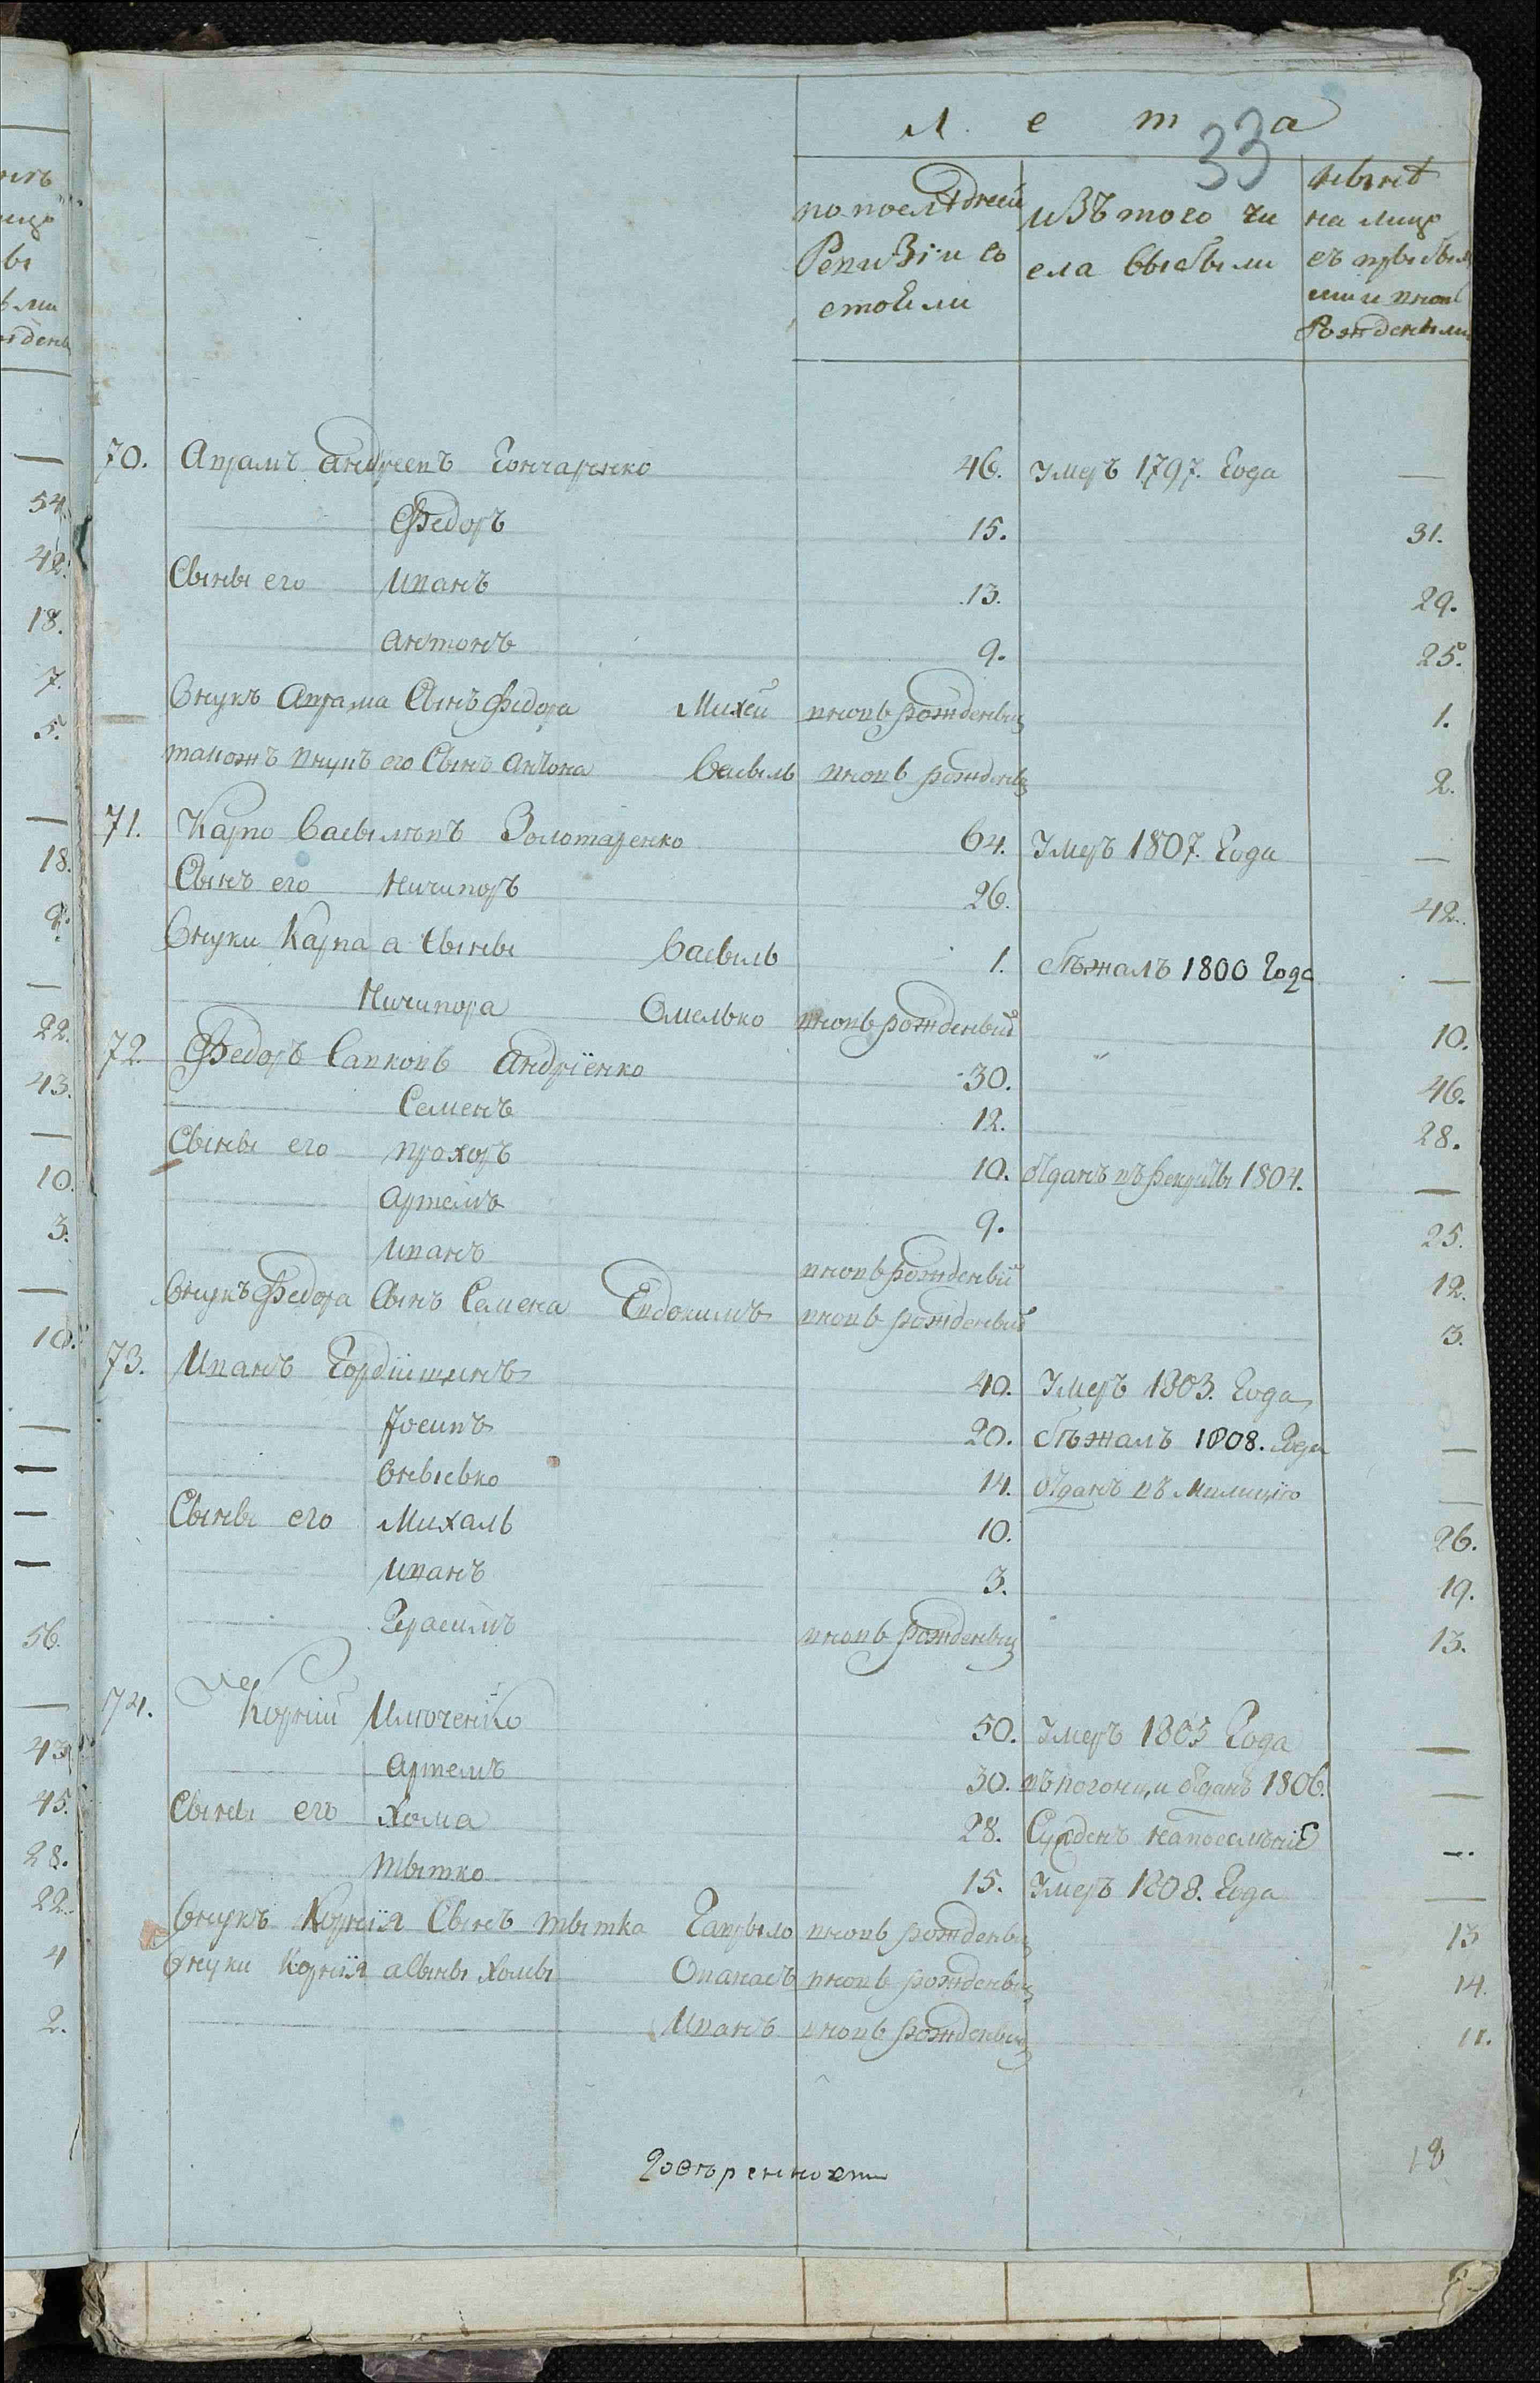 Л е т а
33
по последней
Ревизiи со
стоели
изъ того чи
сла выбыли
ныне
на лицо
съ прибыл
ими и вновь
Рожденными
70. Аврамъ Андреевъ Гончаренко 46. Умеръ 1797. Года —
Федоръ 15. 31.
Сыны его Иванъ 13. 29.
Антонъ 9. 25.
Внукъ Аврама Сынъ Федора Михей вновь рожденный 1.
такожъ внукъ его Сынъ Антона Василь вновь рожденный 2.
71. Карпо Васильевъ Золотаренко 64. Умеръ 1807. Года —
Сынъ его Ничипоръ 26. 42.
Внуки Карпа а Сыны Василь 1. Бѣжалъ 1800 Года —
Ничипора Омелько вновь рожденный 10.
72. Федоръ Савковъ Андрiенко 30. 46.
Семенъ 12. 28.
Сыны его Прохоръ 10. Отданъ въ рекруты 1804. —
Артемъ 9. 25.
Иванъ вновь рожденный 12.
Внукъ Федора Сынъ Семена Евдокимъ вновь рожденный 3.
73. Иванъ Гордiищинъ 40. Умеръ 1803. Года
Iосипъ 20. Бѣжалъ 1808. Года —
Онысько 14. Отданъ въ Милицiю —
Сыны его Михаль 10. 26.
Иванъ 3. 19.
Герасимъ вновь рожденный 13.
74. Корнiй Илюченко 50. Умеръ 1805 Года —
Артемъ 30. въ погонци отданъ 1806. —
Сыны его Хома 28. Сужденъ на поселѣнiе —.
Тытко 15. Умеръ 1808. Года —
Внукъ Корнiя Сынъ Тытка Гаврыло вновь рожденный 13
Внуки Корнiя а Сыны Хомы Опанасъ вновь рожденный 14.
Иванъ вновь рожденный 11.
18